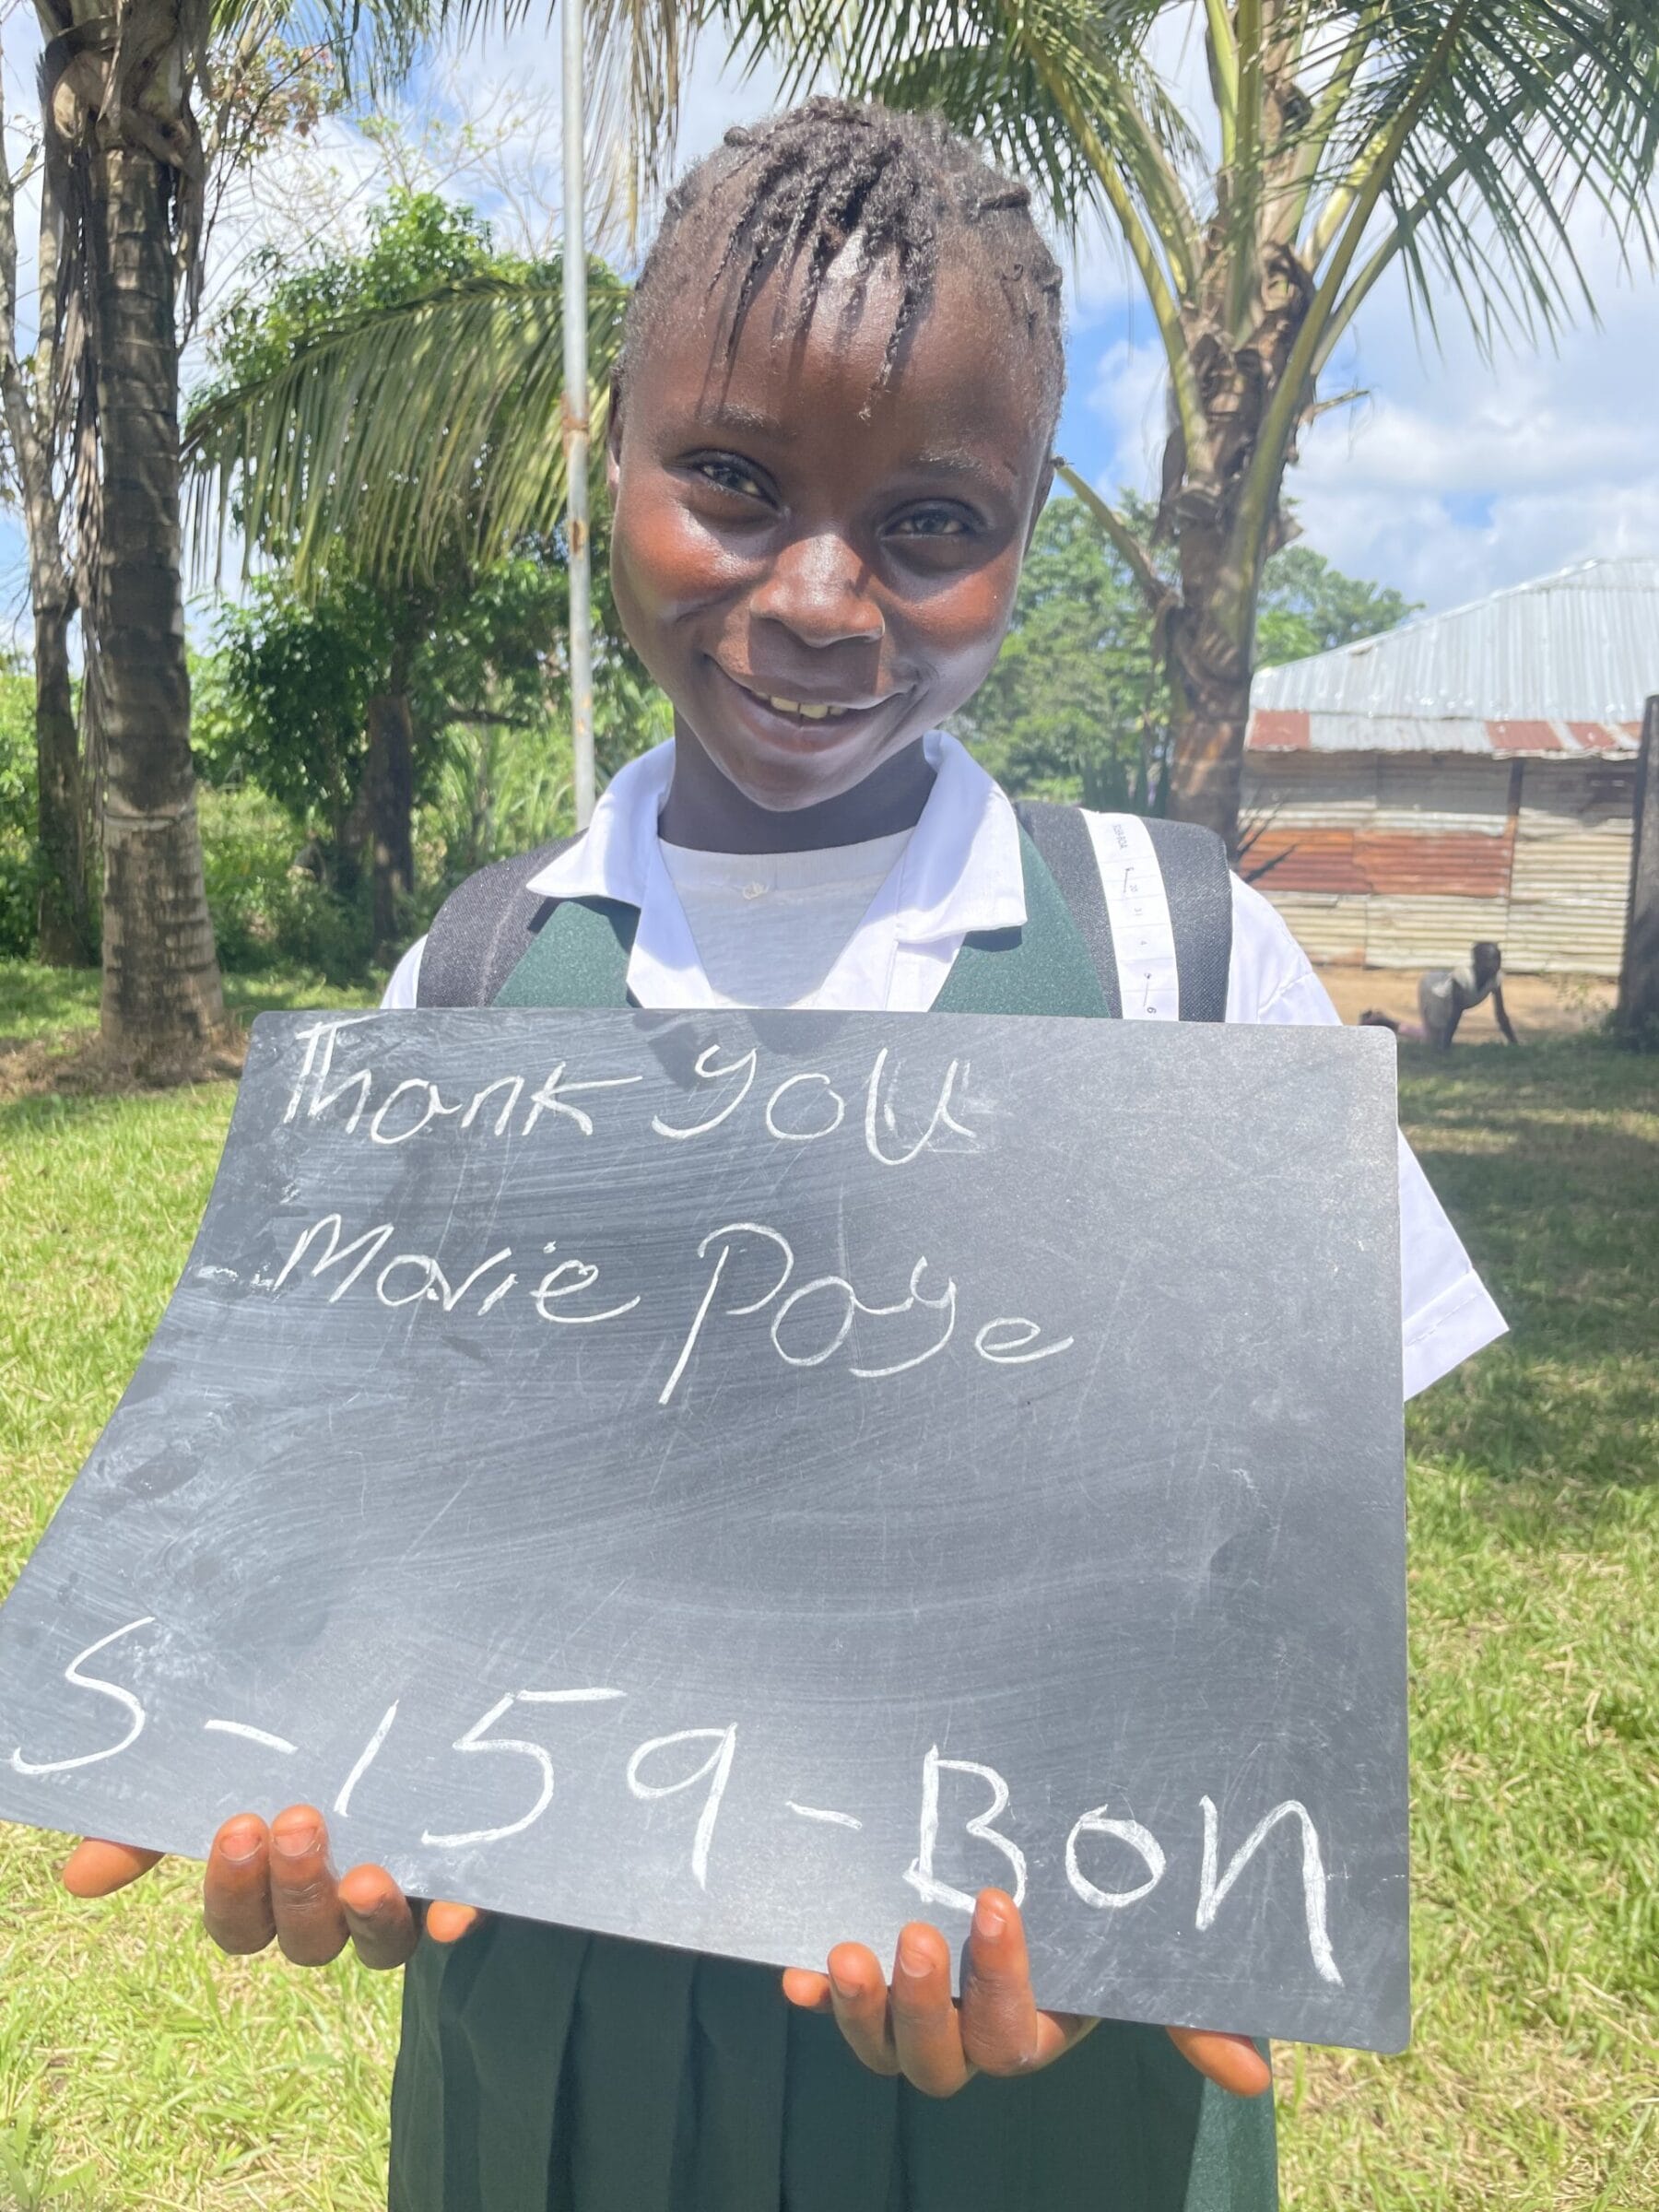 Thank you
Marie Paye
S-159-Bon